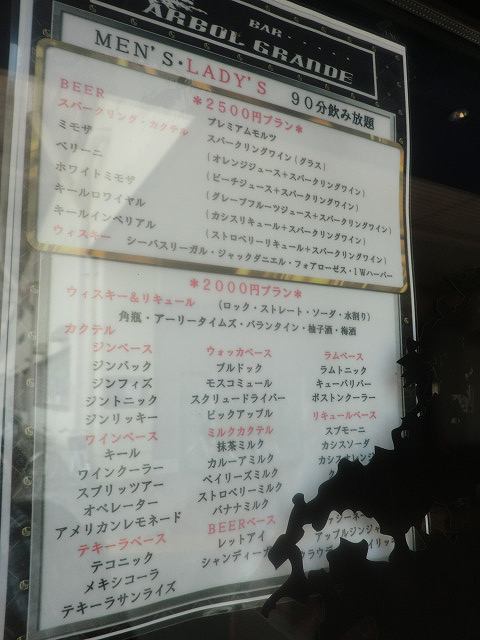 BAR
ARBOL GRANDE
MEN'S・LADY'S 90分飲み放題
＊2500円プラン＊
BEER プレミアムモルツ
スパークリング・カクテル スパークリングワイン(グラス)
ミモザ (オレンジジュース+スパークリングワイン)
ベリーニ (ピーチジュース+スパークリングワイン)
ホワイトミモザ (グレープフルーツジュース+スパークリングワイン)
キールロワイヤル (カシスリキュール+スパークリングワイン)
キールインペリアル (ストロベリーリキュール+スパークリングワイン)
ウィスキー シーバスリーガル・ジャックダニエル・フォアローゼス・IWハーパー
＊2000円プラン＊
ウィスキー&リキュール (ロック・ストレート・ソーダ・水割り)
角瓶・アーリータイムズ・バランタイン・柚子酒・梅酒
カクテル
ジンベース
ジンバック
ジンフィズ
ジントニック
ジンリッキー
ワインベース
キール
ワインクーラー
スプリッツアー
オペレーター
アメリカンレモネード
テキーラベース
テコニック
メキシコーラ
テキーラサンライズ
ウォッカベース
ブルドック
モスコミュール
スクリュードライバー
ビックアップル
ミルクカクテル
抹茶ミルク
カルーアミルク
ベイリーズミルク
ストロベリーミルク
バナナミルク
BEERベース
レットアイ
シャンディー
ラムベース
ラムトニック
キューバリバー
ボストンクーラー
リキュールベース
スプモーニ
カシスソーダ
カシスオレンジ
アップルジンジャ